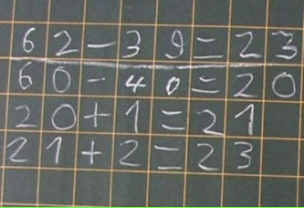 62-39=23
60-40=20
20+1=21
21+2=23